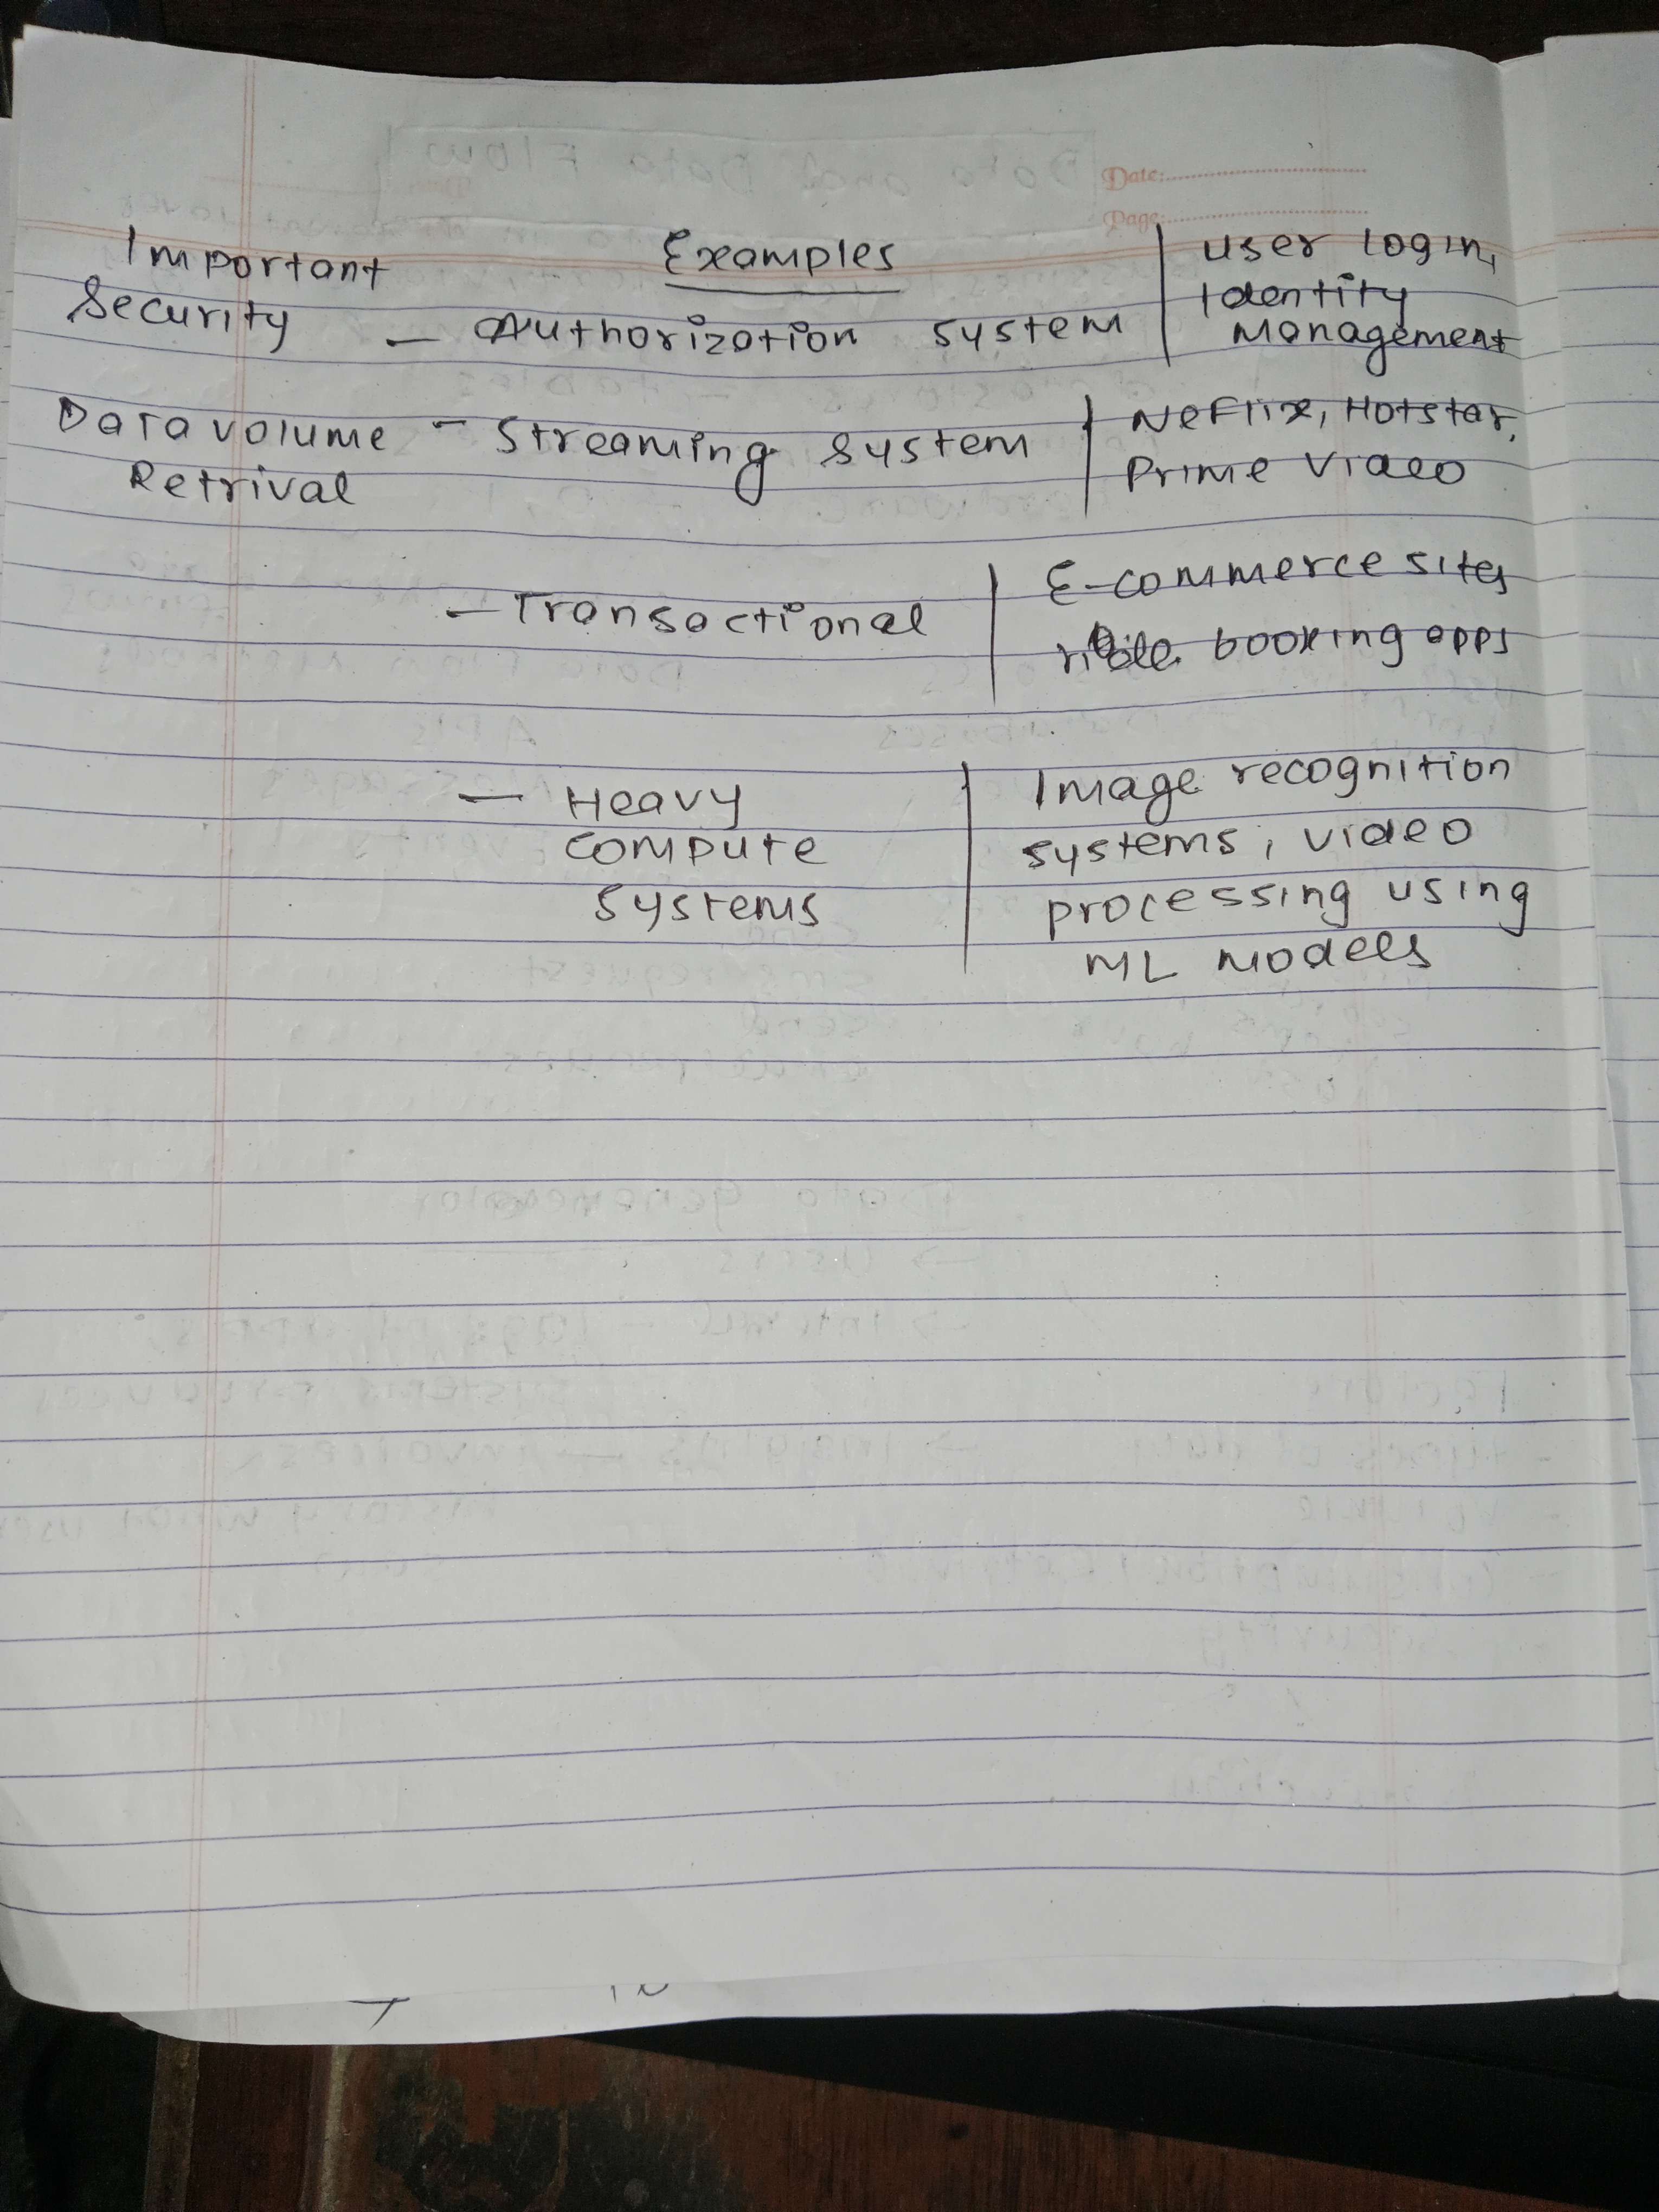 Date:
Page:
Important Examples
Security - Authorization system | User login, Identity Management
Data volume - Streaming System | Neflix, Hotstar,
Retrival Prime Video
- Transactional | E-commerce sites
ride booking apps
- Heavy | Image recognition
compute systems, video
systems processing using
ML models